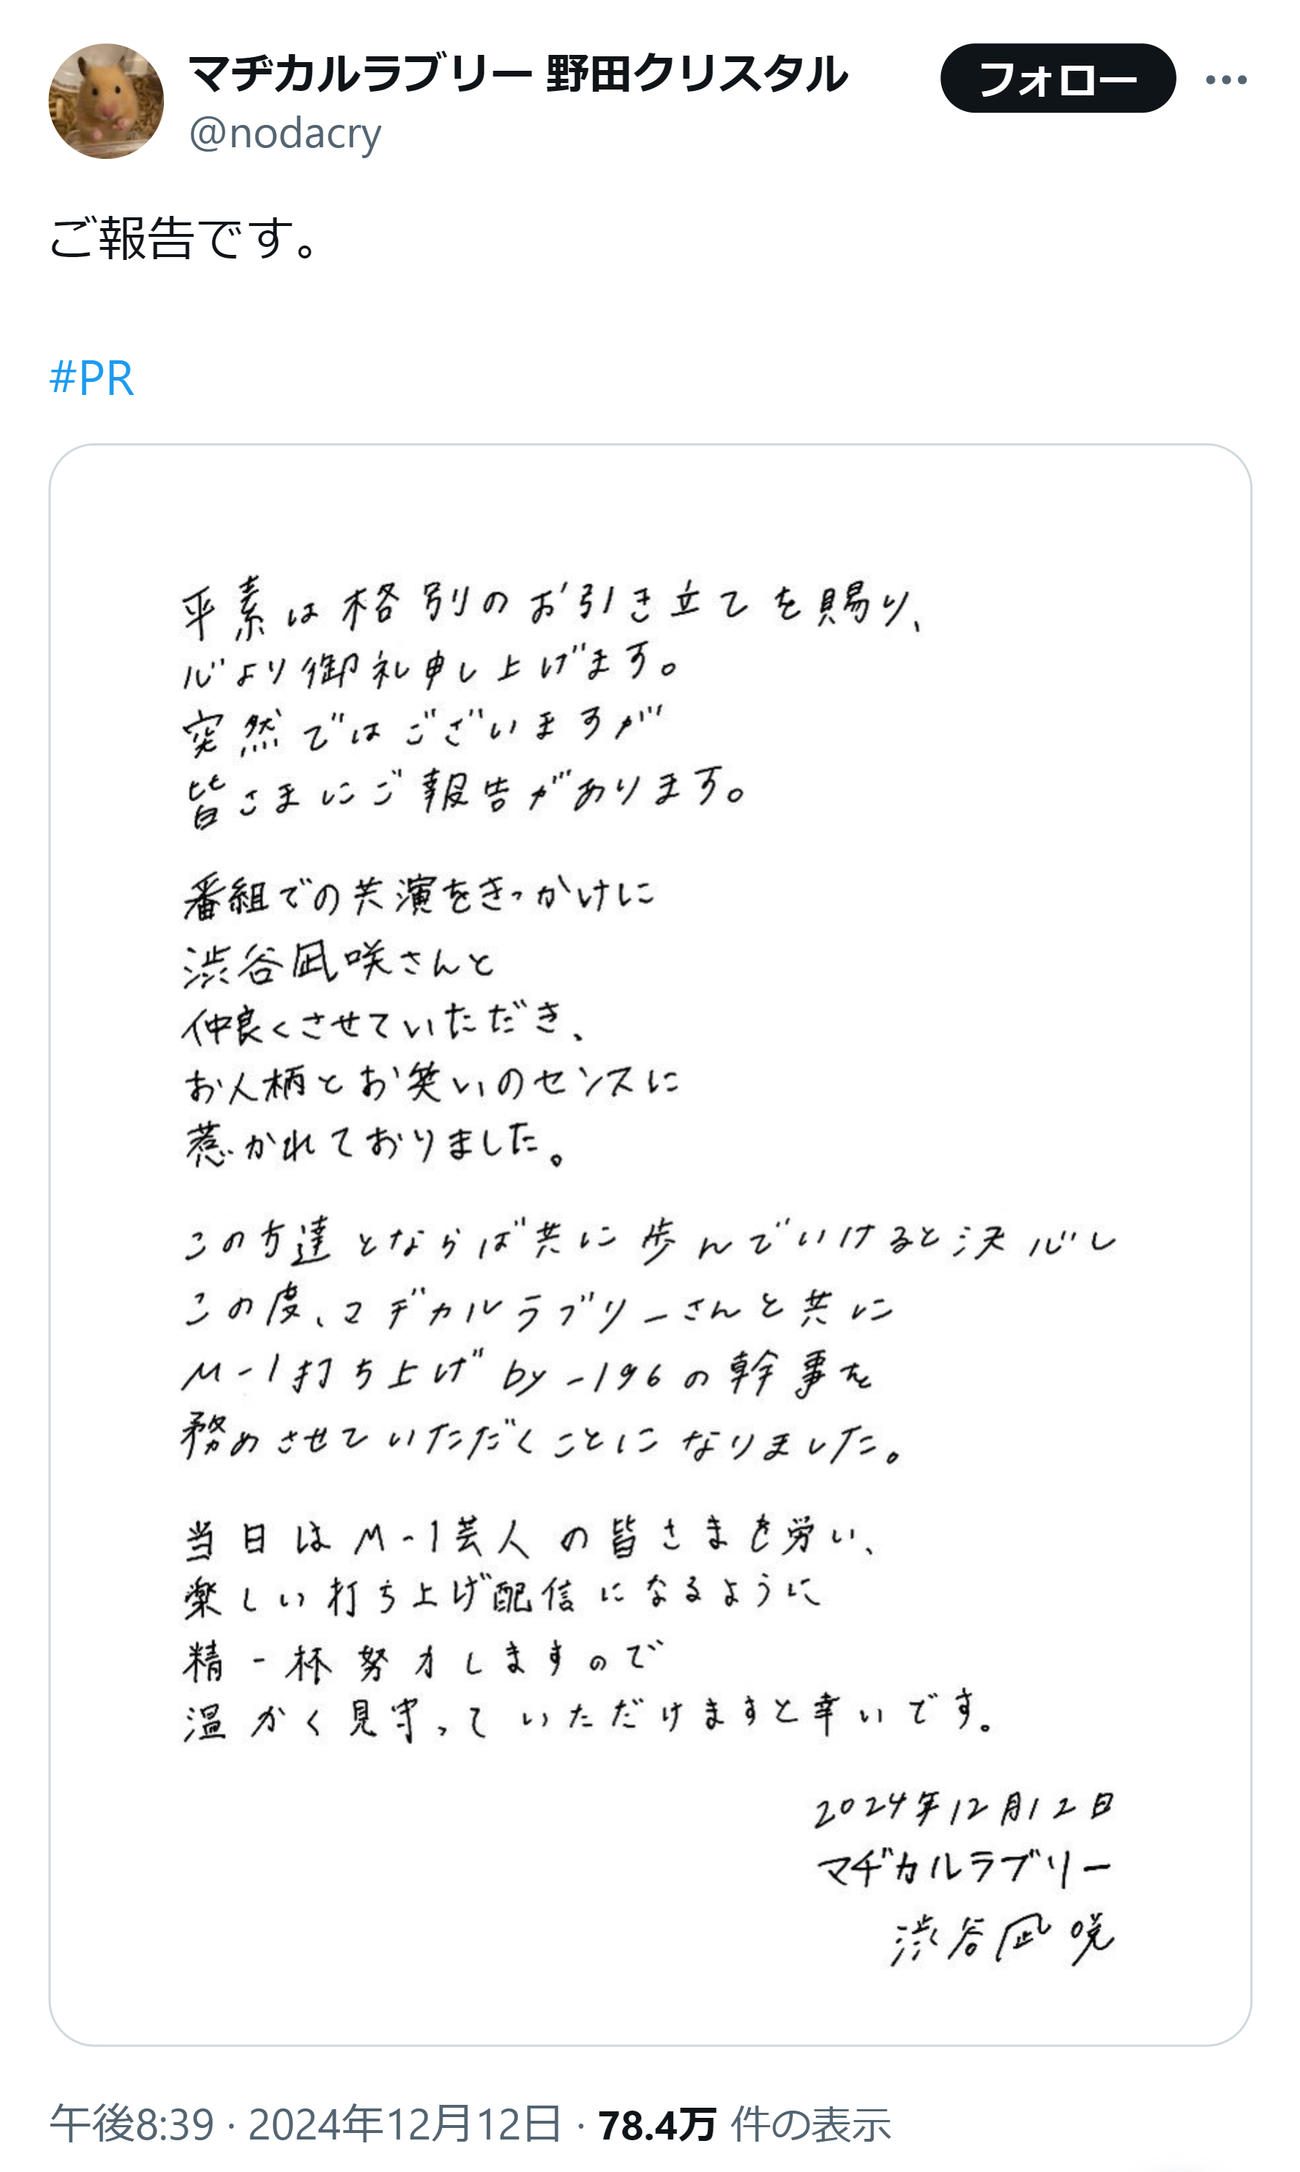 マヂカルラブリー 野田クリスタル
フォロー
@nodacry
ご報告です。
#PR
平素は格別のお引き立てを賜り、
心より御礼申し上げます。
突然ではございますが
皆さまにご報告があります。
番組での共演をきっかけに
渋谷凪咲さんと
仲良くさせていただき、
お人柄とお笑いのセンスに
惹かれておりました。
この方達とならば共に歩んでいけると決心し
この度、マヂカルラブリーさんと共に
M-1打ち上げ by -196の幹事を
務めさせていただくことになりました。
当日はM-1芸人の皆さまを労い、
楽しい打ち上げ配信になるように
精一杯努力しますので
温かく見守っていただけますと幸いです。
2024年12月12日
マヂカルラブリー
渋谷凪咲
午後8:39 · 2024年12月12日 · 78.4万 件の表示